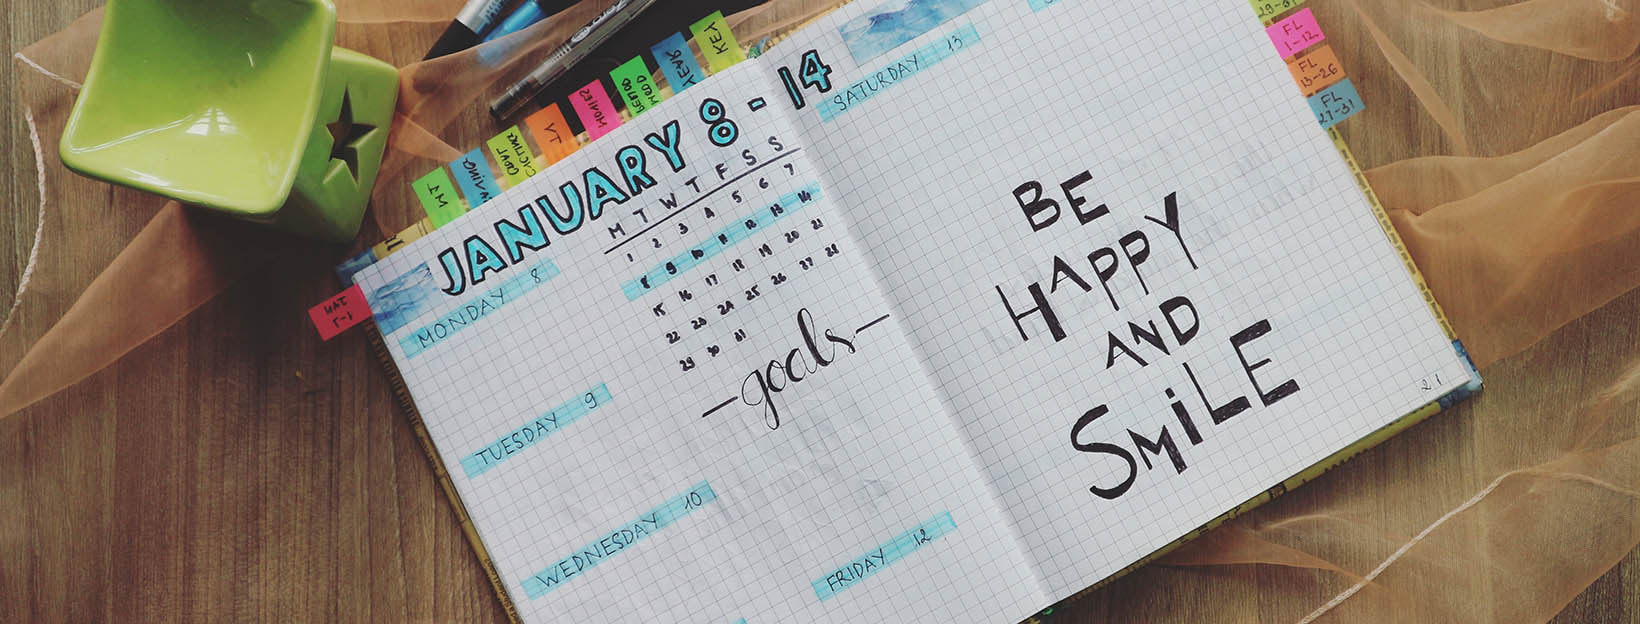 KEY
YEAR
MOVIES
TV
MT
MAT
JANUARY 8 - 14
M T W T F S S
1 2 3 4 5 6 7
8 9 10 11 12 13 14
15 16 17 18 19 20 21
22 23 24 25 26 27 28
29 30 31
MONDAY 8
goals
TUESDAY 9
WEDNESDAY 10
FRIDAY 12
SATURDAY 13
BE
HAPPY
AND
SMiLE
21
29-31
FL
1-12
FL
13-26
FL
27-31